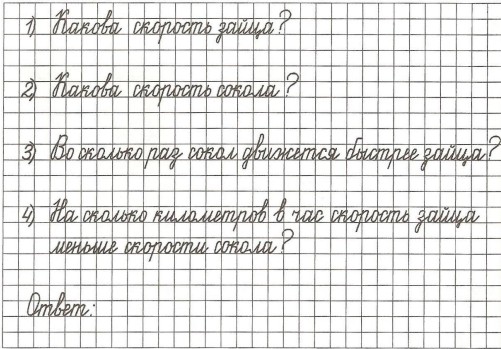 1) Какова скорость зайца?
2) Какова скорость сокола?
3) Во сколько раз сокол движется быстрее зайца?
4) На сколько километров в час скорость зайца
меньше скорости сокола?
Ответ: